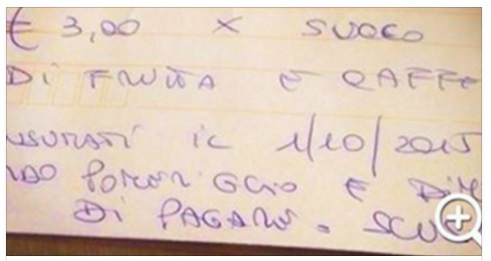 € 3,00 X SUCCO
DI FRUTTA E CAFFE
NSUMATI IL 1/10/2015
POMERIGGIO E DIM
DI PAGARVI. SCU